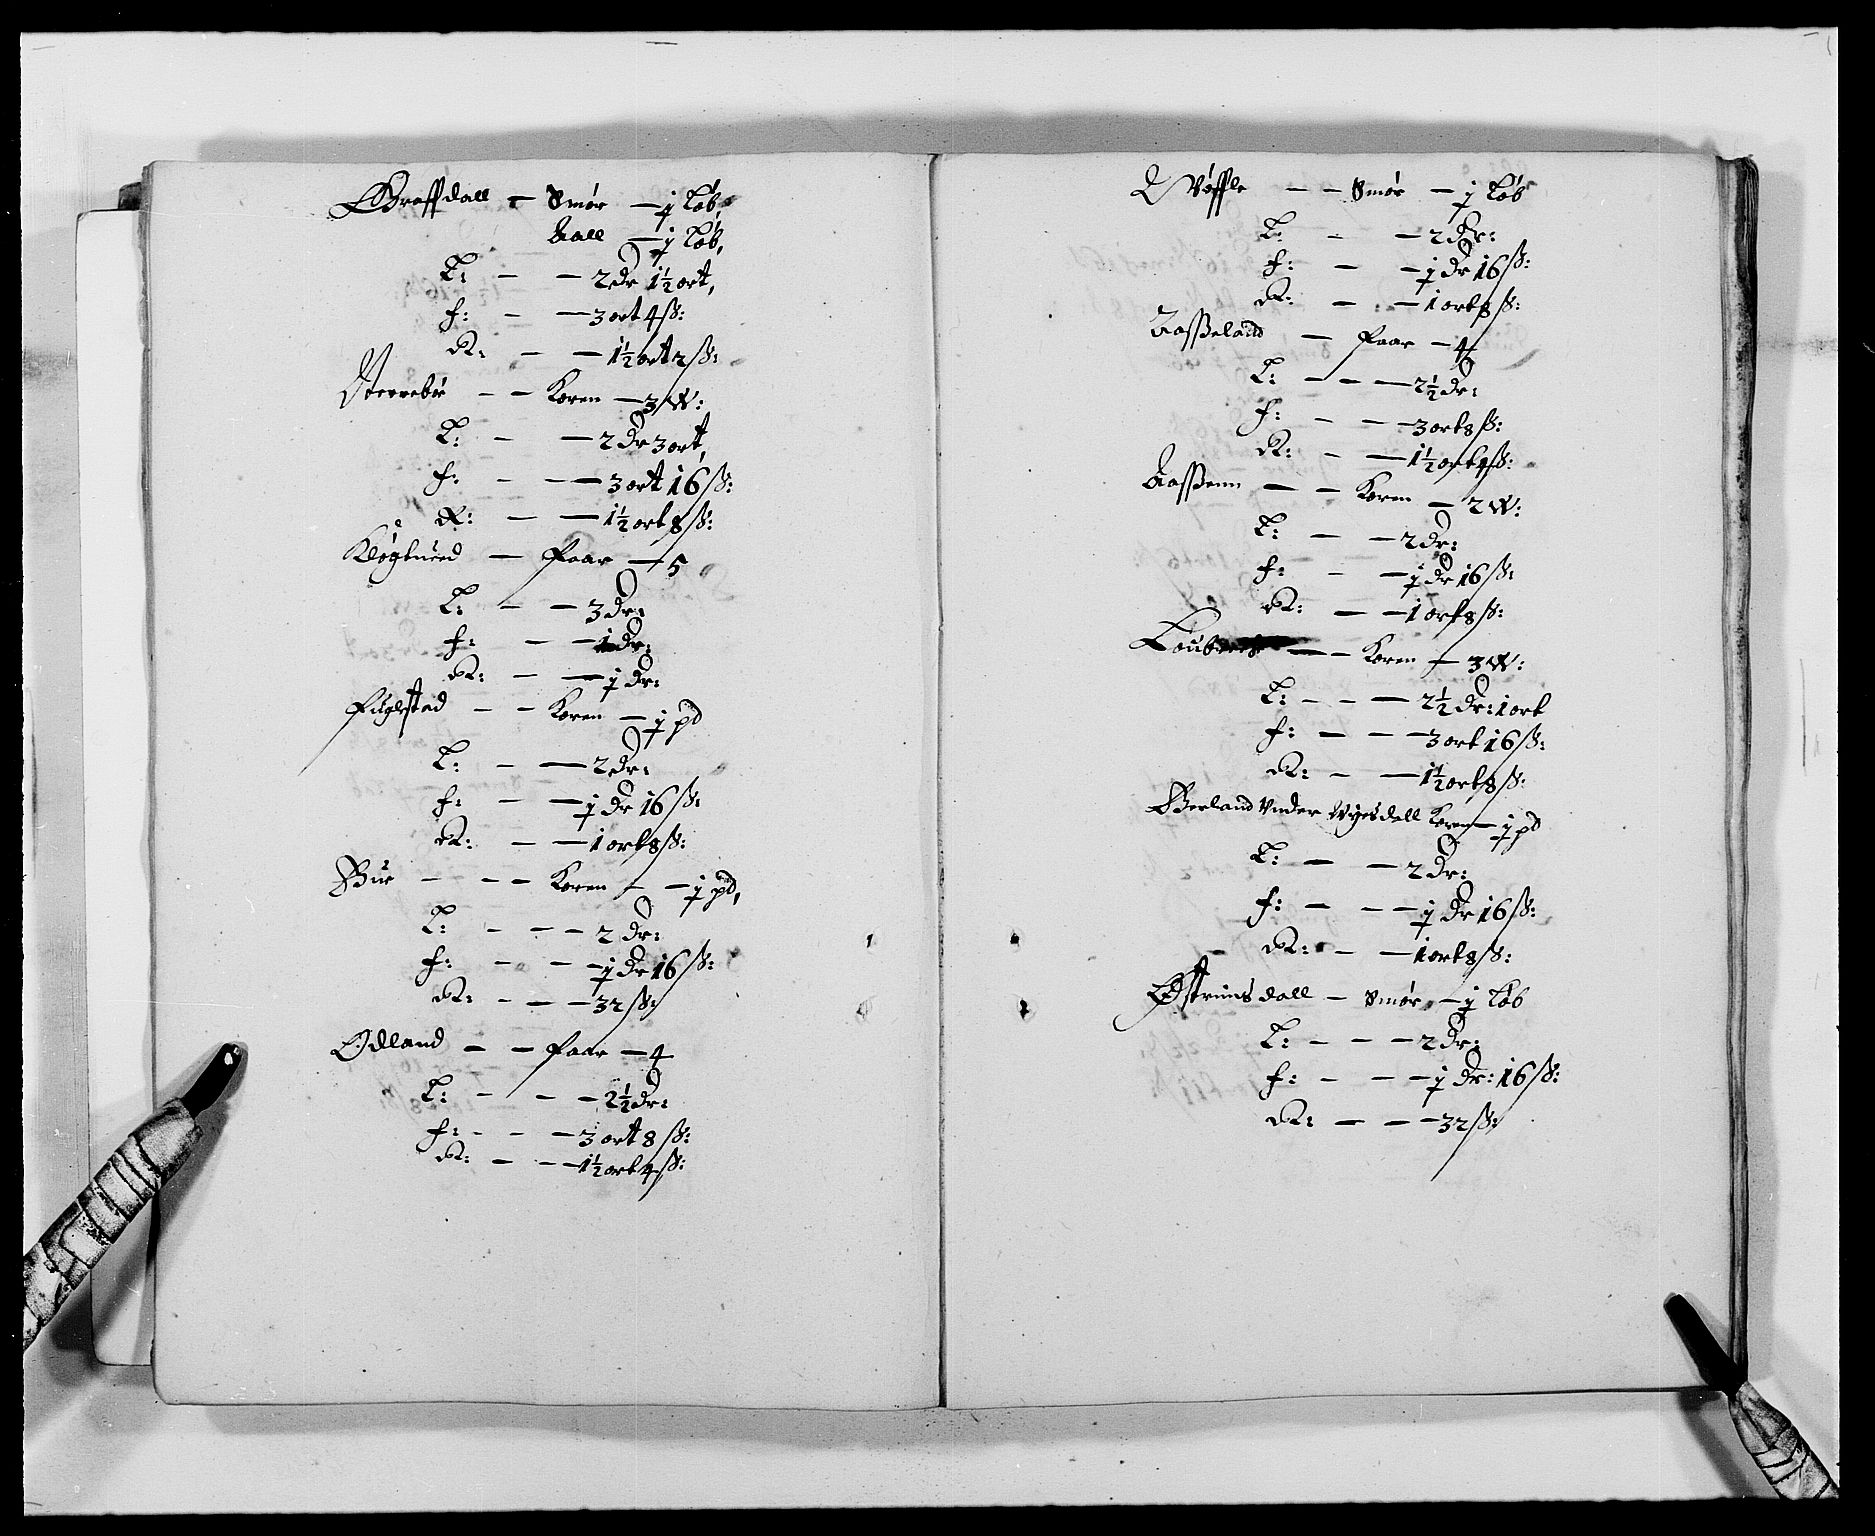 Greffdall - Smør - j Løb,
Aall - j Løb,
L: - - 2 dr 1½ ort,
f: - - 3 ort 4 ß:
R: - - 1½ ort 2 ß:
Sterrebør - - Koren - 3 W:
L: - - 2 dr 3 ort,
f: - - 3 ort 16 ß:
R: - - 1½ ort 8 ß:
Kløgtued - Faar - 5
L: - - 3 dr:
f: - - 1 dr:
R: - - j dr:
Fuglestad - - Koren - j pd
L: - - 2 dr:
f: - - j dr 16 ß:
R: - - 1 ort 8 ß:
Bue - - - Koren - - j pd,
L: - - - 2 dr:
f: - - - j dr 16 ß:
R: - - - 32 ß:
Ødland - - Faar - 4
L: - - - 2½ dr:
f: - - - 3 ort 8 ß:
R: - - - 1½ ort 4 ß:
- - Smør - j Løb
L: - - 2 dr:
f: - - j dr 16 ß:
R: - - 1 ort 8 ß:
Aasseland - Faar - 4
L: - - - 2½ dr:
f: - - - 3 ort 8 ß:
R: - - 1½ ort 4 ß:
Aassenn - - Koren - 2 W:
L: - - 2 dr:
f: - - j dr 16 ß:
R: - - 1 ort 8 ß:
- - Koren - 3 W:
L: - - - 2½ dr: 1 ort
f: - - - 3 ort 16 ß:
R: - - 1½ ort 8 ß:
Berland Under Koren - j pd
L: - - 2 dr:
f: - - - j dr 16 ß:
R: - - 1 ort 8 ß:
Østrumsdall - Smør - j Løb
L: - - - 2 dr:
f: - - - j dr: 16 ß:
R: - - - 32 ß: